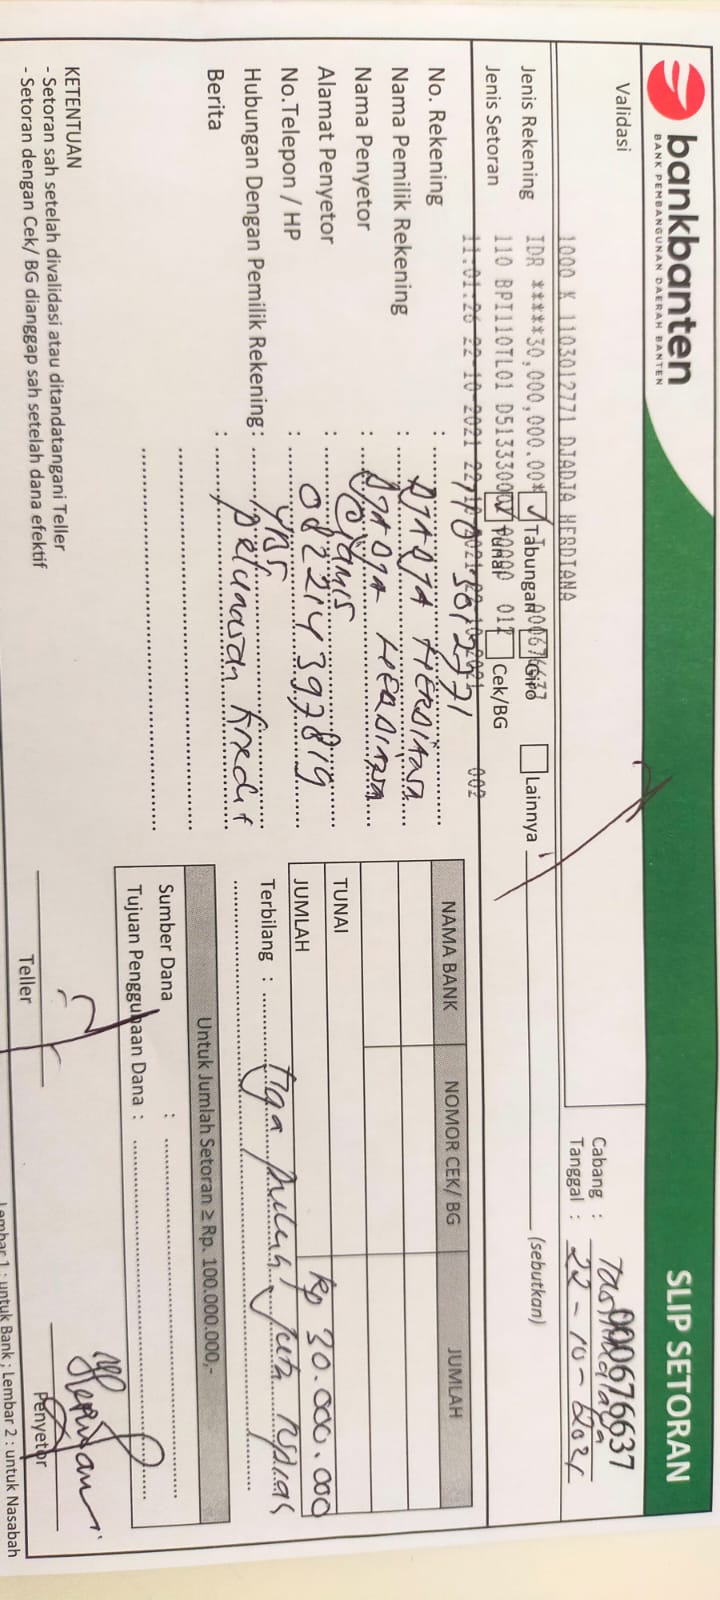 bankbanten
BANK PEMBANGUNAN DAERAH BANTEN
SLIP SETORAN
Validasi
1000 K 1103012771 DJADJA HERDIANA
Cabang :
000676637
Tanggal : 22 - 10 - 2021
Jenis Rekening
IDR *****30,000,000.00*
Tabungan
Giro
Lainnya
(sebutkan)
Jenis Setoran
110 BPI110TL01
Tunai
Cek/BG
11:01:26 22-10-2021
002
No. Rekening :
Nama Pemilik Rekening : DJADJA HERDIANA
Nama Penyetor : DJADJA HERDIANA
Alamat Penyetor : Ciamis
No.Telepon / HP : 082214397819
Hubungan Dengan Pemilik Rekening: YBS
Berita : pelunasan kredit
NAMA BANK NOMOR CEK/ BG JUMLAH
TUNAI
JUMLAH Rp 30.000.000
Terbilang : tiga puluh juta rupiah
Untuk Jumlah Setoran ≥ Rp. 100.000.000,-
Sumber Dana :
Tujuan Penggunaan Dana :
KETENTUAN
- Setoran sah setelah divalidasi atau ditandatangani Teller
- Setoran dengan Cek/ BG dianggap sah setelah dana efektif
Teller
Penyetor
Lembar 1 : untuk Bank ; Lembar 2 : untuk Nasabah